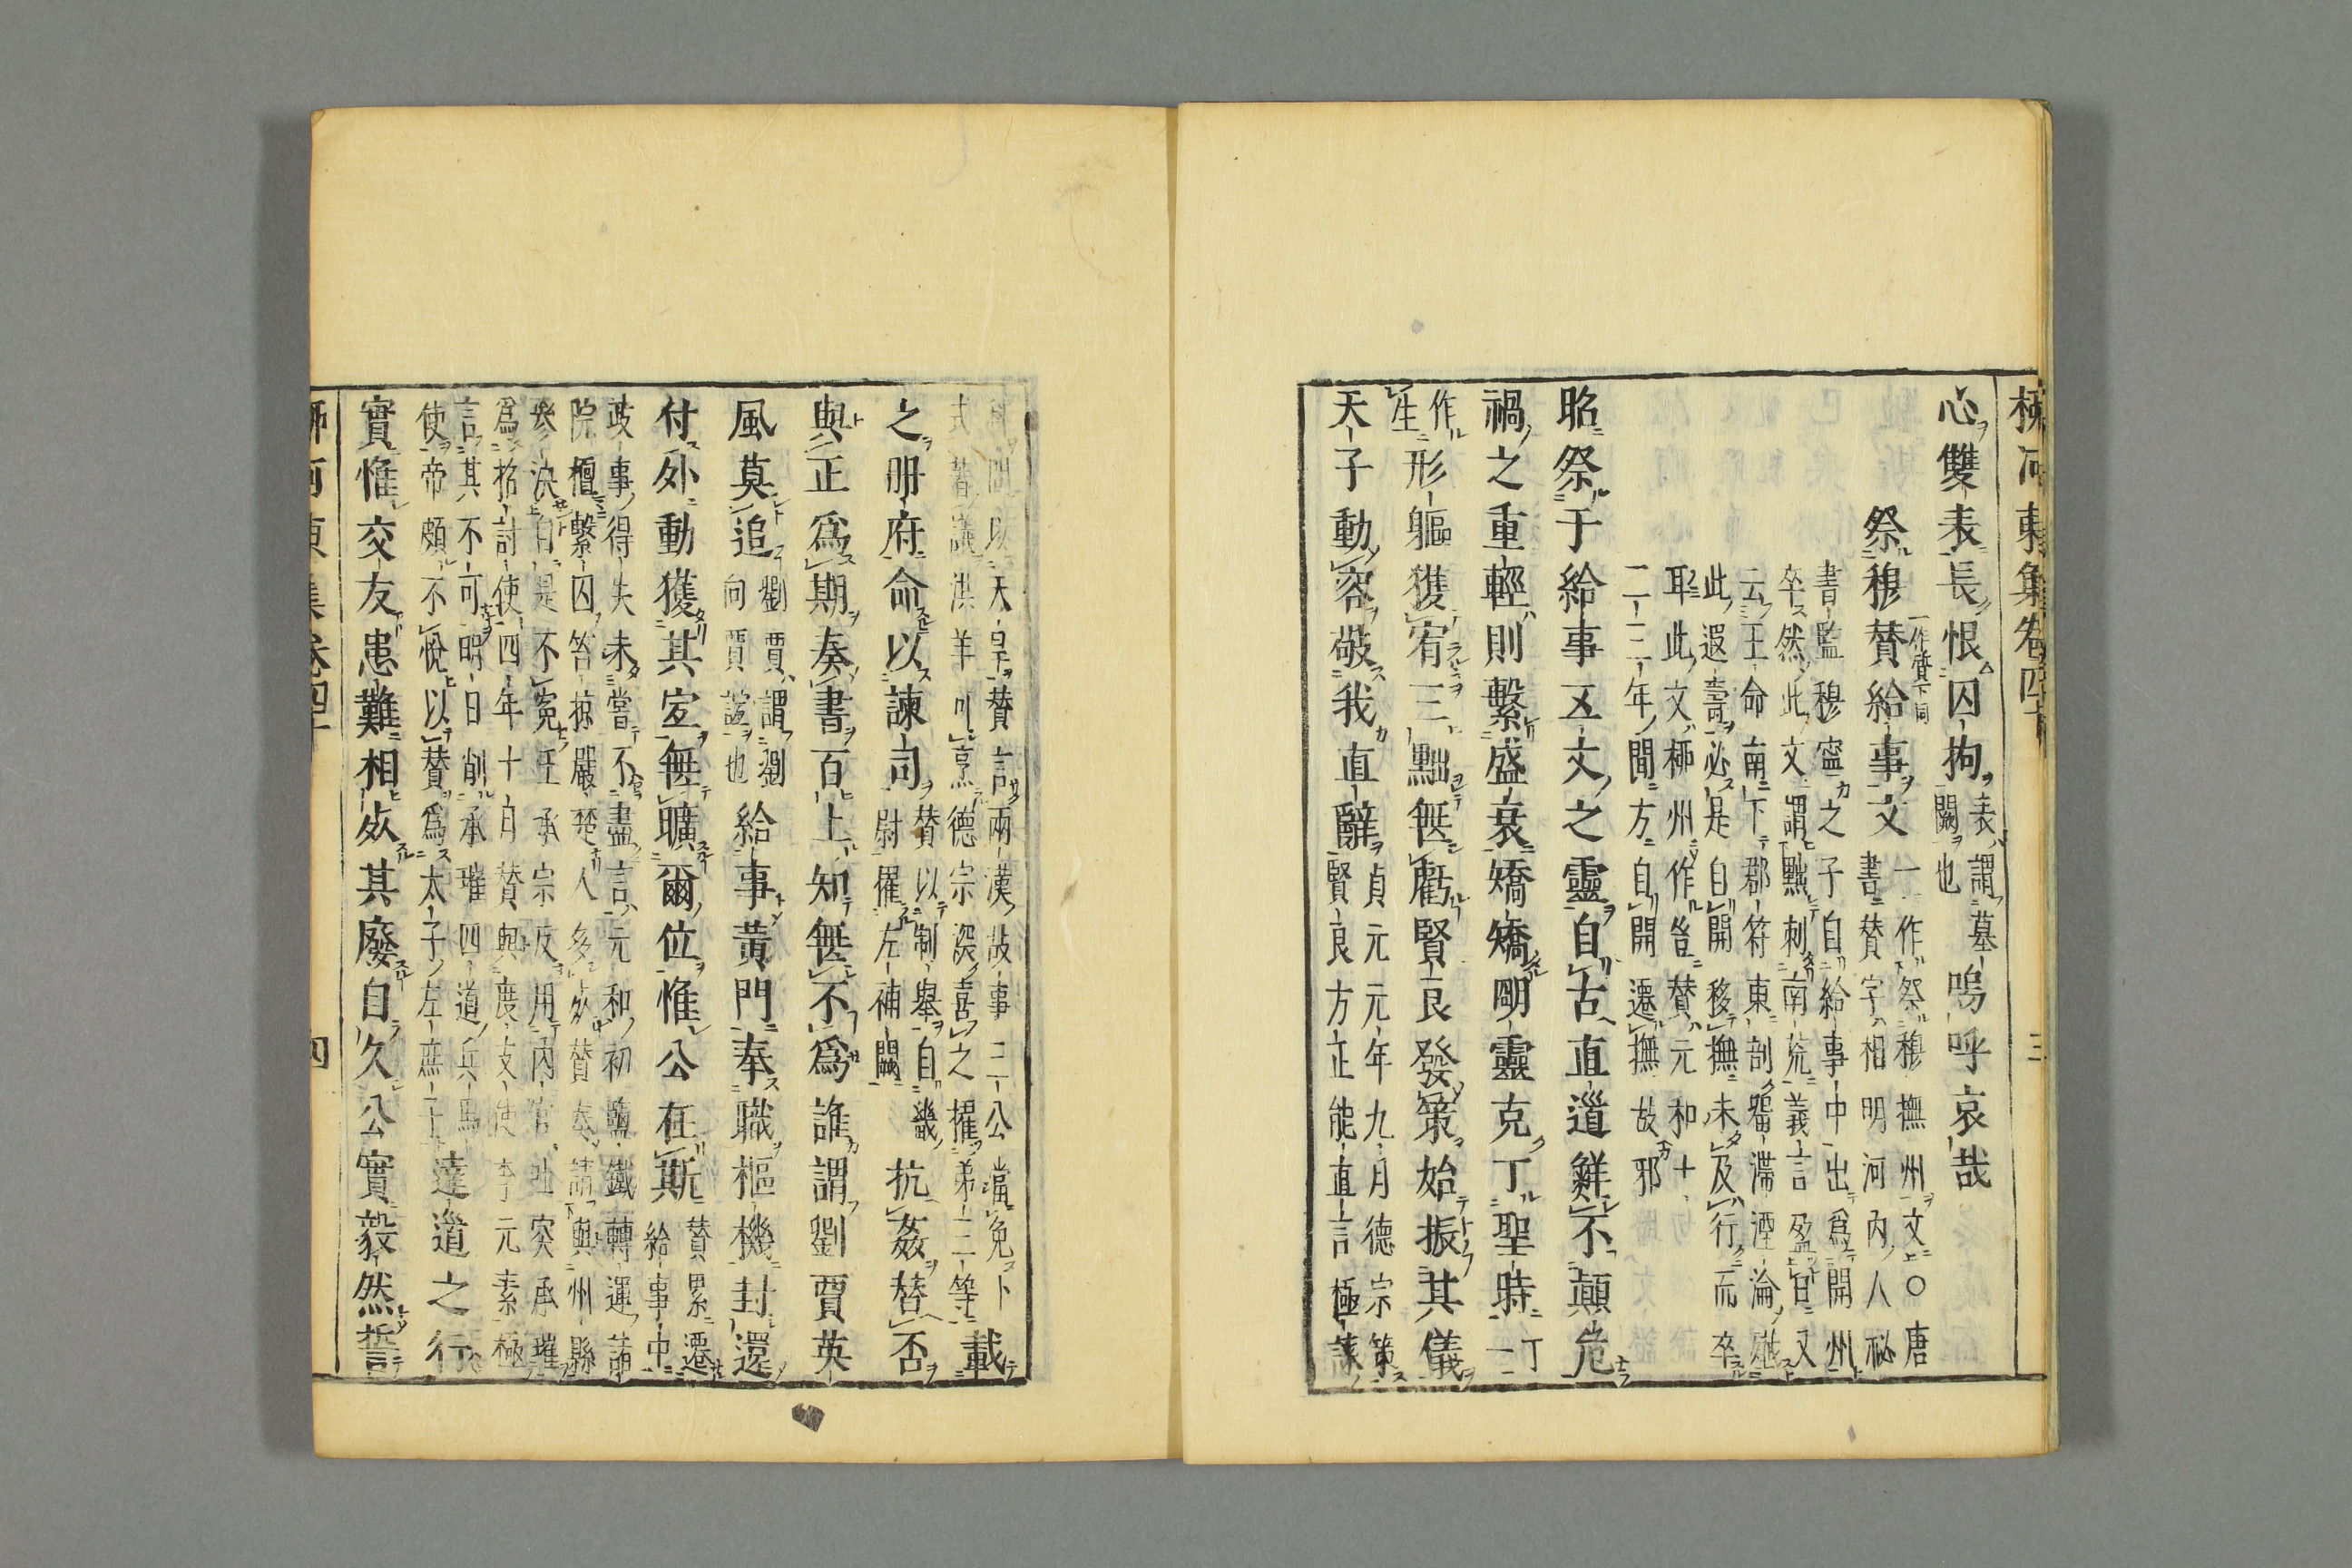 柳河東集卷四十 三
心雙表長恨囚拘
表謂墓
闕也
嗚呼哀哉
祭穆贊給事文
一作質下同
一作祭穆撫州文○唐
書贊字相明河內人祕
書監穆寧之子自給事中出為開州
卒然此文謂點刺南荒義言盈又
云王命南下郡符東剖留滯湮淪
此遐壽必是自開移撫未及行而卒
耳此文柳州作豈贊元和十
二三年間方自開遷撫故邪
昭祭于給事五丈之靈自古直道鮮不顛危
禍之重輕則繫盛衰矯矯明靈克丁聖時
丁
一
作
生
形軀獲宥三黜無虧賢良發策始振其儀
天子動容敬我直辭
貞元元年九月德宗策
賢良方正能直言極諫
科問以天皇贊言兩漢故事三公當免卜
式著議洪羊可烹德宗深嘉之擢第三等
載
之冊府命以諫司
贊以制舉自畿
尉擢左補闕
抗姦替否
與正為期奏書百上知無不為誰謂劉賈英
風莫追
劉賈謂劉
向賈誼也
給事黃門奉職樞機封還
付外動獲其宜無曠爾位惟公在斯
贊累遷
給事中
政事得失未嘗不盡言元和初鹽鐵轉運
院擅繫囚笞掠嚴楚人多死贊奏請與州縣
參決自是不冤王承宗反用內官突承璀
為招討使四年十月贊與度支使李元素極
言其不可明日削承璀四道兵馬
使帝頗不悅以贊為太子左庶子
達道之行
實惟交友患難相死其廢自久公實毅然誓
柳河東集卷四十 四